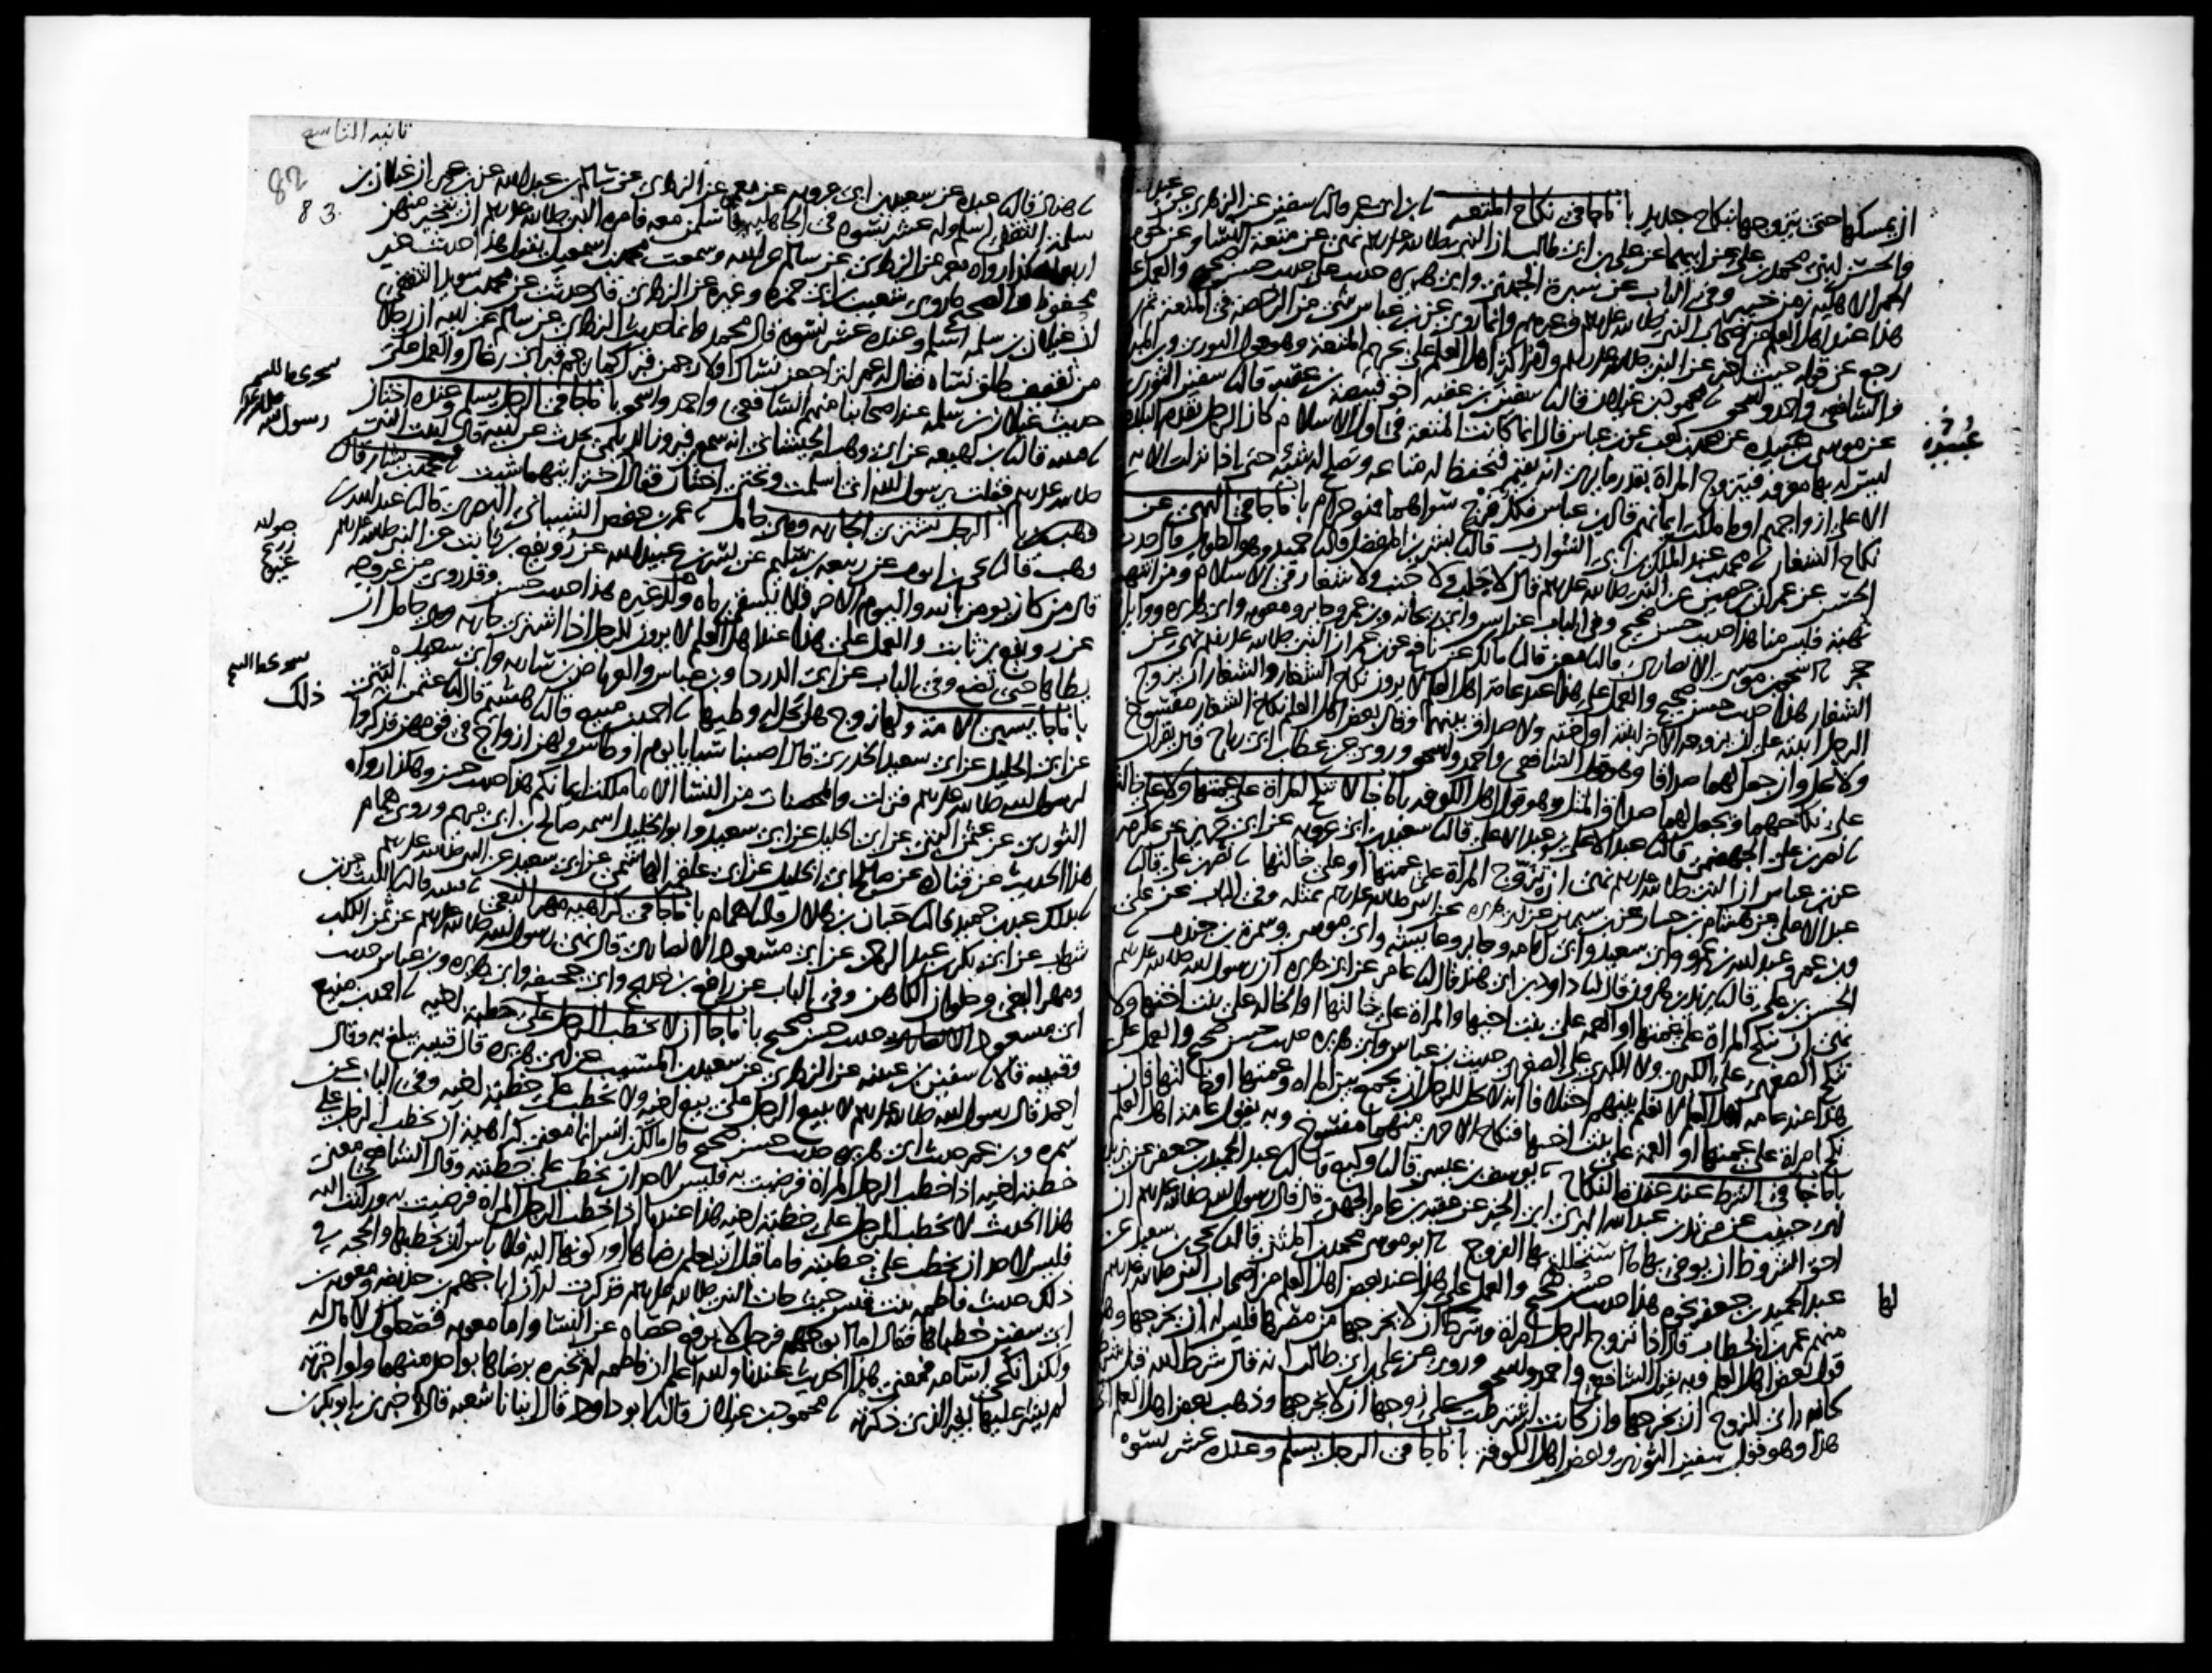 ان يمسكها حتى يتزوجها بنكاح جديد باب ما جا في نكاح المتعة نا ابن ابي عمر قال نا سفين عن الزهري عن عبد
والحسن ابني محمد بن علي عن ابيهما عن علي بن ابي طالب ان النبي صلى الله عليه وسلم نهى عن متعة النسا وعن لحوم
الحمر الاهلية زمن خيبر وفي الباب عن سبرة الجهني وابي هريرة حديث علي حديث حسن صحيح والعمل على
هذا عند اهل العلم من اصحاب النبي صلى الله عليه وسلم وغيرهم وانما روي عن بن عباس شي من الرخصة في المتعة ثم
رجع عن قوله حيث اخبر عن النبي صلى الله عليه وسلم وامر اكثر اهل العلم على تحريم المتعة وهو قول الثوري وبن المبارك
والشافعي واحمد واسحق نا محمود بن غيلان قال نا سفين بن عقبة اخو قبيصة بن عقبة قال نا سفين الثوري
عن موسى بن عبيدة عن محمد بن كعب عن بن عباس قال انما كانت المتعة في اول الاسلام كان الرجل يقدم البلدة
ليس له بها معرفة فيتزوج المراة بقدر ما يرى انه يقيم فتحفظ له متاعه وتصلح له شيئه حتى اذا نزلت الاية
الا على ازواجهم او ما ملكت ايمانهم قال بن عباس فكل فرج سواهما فهو حرام باب ما جا في النهي عن
نكاح الشغار نا محمد بن عبد الملك بن ابي الشوارب قال نا بشر بن المفضل قال نا حميد وهو الطويل قال حدث
الحسن عن عمران بن حصين عن النبي صلى الله عليه وسلم قال لا جلب ولا جنب ولا شغار في الاسلام ومن انتهب
نهبة فليس منا هذا حديث حسن صحيح وفي الباب عن انس وابي ريحانة وبن عمر وجابر ومعوية وابي هريرة ووايل
حجر نا اسحق بن موسى الانصاري قال نا معن قال نا مالك عن نافع عن بن عمر ان النبي صلى الله عليه وسلم نهى عن
الشغار هذا حديث حسن صحيح والعمل على هذا عند عامة اهل العلم لا يرون نكاح الشغار والشغار ان يزوج
الرجل ابنته على ان يزوجه الاخر ابنته او اخته ولا صداق بينهما وقال بعض اهل العلم نكاح الشغار مفسوخ
ولا يحل وان جعل لهما صداقا وهو قول الشافعي واحمد واسحق وروي عن عطا بن ابي رباح قال يقران
على نكاحهما ويجعل لهما صداق المثل وهو قول اهل الكوفة باب ما جا لا تنكح المراة على عمتها ولا على خالتها
نا نصر بن علي الجهضمي قال نا عبد الاعلى بن عبد الاعلى قال نا سعيد بن ابي عروبة عن ابي حريز عن عكرمة
عن بن عباس ان النبي صلى الله عليه وسلم نهى ان تزوج المراة على عمتها او على خالتها نا نصر بن علي قال نا
عبد الاعلى عن هشام بن حسان عن بن سيرين عن ابي هريرة عن النبي صلى الله عليه وسلم بمثله وفي الباب عن علي
وبن عمر وعبد الله بن عمرو وابي سعيد وابي امامة وجابر وعايشة وابي موسى وسمرة بن جندب نا
الحسن بن علي قال نا يزيد بن هرون قال نا داود بن ابي هند قال نا عامر عن ابي هريرة ان رسول الله صلى الله عليه وسلم
نهى ان تنكح المراة على عمتها او العمة على بنت اخيها والمراة على خالتها او الخالة على بنت اختها ولا
تنكح الصغرى على الكبرى ولا الكبرى على الصغرى حديث بن عباس وابي هريرة حديث حسن صحيح والعمل على
هذا عند عامة اهل العلم لا نعلم بينهم اختلافا انه لا يحل للرجل ان يجمع بين المراة وعمتها او خالتها فان
نكح امراة على عمتها او العمة على بنت اخيها فنكاح الاخرى منهما مفسوخ وبه يقول عامة اهل العلم
باب ما جا في الشرط عند عقدة النكاح نا يوسف بن عيسى قال نا وكيع قال نا عبد الحميد بن جعفر عن يزيد
ابي حبيب عن مرثد بن عبد الله اليزني ابي الخير عن عقبة بن عامر الجهني قال قال رسول الله صلى الله عليه وسلم ان
احق الشروط ان يوفى بها ما استحللتم بها الفروج نا ابو موسى محمد بن المثنى قال نا يحيى بن سعيد عن
عبد الحميد بن جعفر نحوه هذا حديث حسن صحيح والعمل على هذا عند بعض اهل العلم من اصحاب النبي صلى الله عليه وسلم
منهم عمر بن الخطاب قال اذا تزوج الرجل امراة وشرط ان لا يخرجها من مصرها فليس له ان يخرجها وهو
قول بعض اهل العلم وبه يقول الشافعي واحمد واسحق وروي عن علي بن ابي طالب انه قال شرط الله قبل شرطها
كانه راى للزوج ان يخرجها وان كانت اشترطت على زوجها ان لا يخرجها وذهب بعض اهل العلم الى
هذا وهو قول سفين الثوري وبعض اهل الكوفة باب ما جا في الرجل يسلم وعنده عشر نسوة
عبيدة
لها
ثانية التاسع
82
83
نا هناد قال نا عبدة عن سعيد بن ابي عروبة عن معمر عن الزهري عن سالم بن عبد الله عن بن عمر ان غيلان بن
سلمة الثقفي اسلم وله عشر نسوة في الجاهلية فاسلمن معه فامره النبي صلى الله عليه وسلم ان يتخير منهن
اربعا هكذا رواه معمر عن الزهري عن سالم عن ابيه وسمعت محمد بن اسمعيل يقول هذا حديث غير
محفوظ والصحيح ما روى شعيب بن ابي حمزة وغيره عن الزهري قال حدثت عن محمد بن سويد الثقفي
ان غيلان بن سلمة اسلم وعنده عشر نسوة قال محمد وانما حديث الزهري عن سالم عن ابيه ان رجلا
من ثقيف طلق نساه فقال له عمر لتراجعن نساك او لارجمن قبرك كما رجم قبر ابي رغال والعمل على
حديث غيلان بن سلمة عند اصحابنا منهم الشافعي واحمد واسحق باب ما جا في الرجل يسلم وعنده اختان
نا قتيبة قال نا بن لهيعة عن ابي وهب الجيشاني انه سمع بن فيروز الديلمي يحدث عن ابيه قال اتيت النبي
صلى الله عليه وسلم فقلت يرسول الله اني اسلمت وتحتي اختان فقال اختر ايتهما شيت نا محمد بن بشار قال
وهب باب الرجل يشتري الجارية وهي حامل نا عمر بن حفص الشيباني البصري قال نا عبد الله بن
وهب قال نا يحيى بن ايوب عن ربيعة بن سليم عن بسر بن عبيد الله عن رويفع بن ثابت عن النبي صلى الله عليه وسلم
قال من كان يومن بالله واليوم الاخر فلا يسقي ماه ولد غيره هذا حديث حسن وقد روي من غير وجه
عن رويفع بن ثابت والعمل على هذا عند اهل العلم لا يرون للرجل اذا اشترى جارية وهي حامل ان
يطاها حتى تضع وفي الباب عن ابي الدردا وبن عباس والعرباض بن سارية وابي سعيد
باب ما جا يسبي الامة ولها زوج هل يحل له وطيها نا احمد بن منيع قال نا هشيم قال نا عثمن البتي
عن ابي الخليل عن ابي سعيد الخدري قال اصبنا سبايا يوم اوطاس ولهن ازواج في قومهن فذكروا
لرسول الله صلى الله عليه وسلم فنزلت والمحصنات من النسا الا ما ملكت ايمانكم هذا حديث حسن وهكذا رواه
الثوري عن عثمن البتي عن ابي الخليل عن ابي سعيد وابو الخليل اسمه صالح بن ابي مريم وروى همام
هذا الحديث عن قتادة عن صالح ابي الخليل عن ابي علقمة الهاشمي عن ابي سعيد عن النبي صلى الله عليه وسلم
بذلك عبد بن حميد قال نا حبان بن هلال قال نا همام باب ما جا في كراهية مهر البغي نا قتيبة قال نا الليث عن بن
شهاب عن ابي بكر بن عبد الرحمن عن ابي مسعود الانصاري قال نهى رسول الله صلى الله عليه وسلم عن ثمن الكلب
ومهر البغي وحلوان الكاهن وفي الباب عن رافع بن خديج وابي جحيفة وابي هريرة وبن عباس حديث
ابي مسعود الانصاري حديث حسن صحيح باب ما جا ان لا يخطب الرجل على خطبة اخيه نا احمد بن منيع
وقتيبة قالا نا سفين بن عيينة عن الزهري عن سعيد بن المسيب عن ابي هريرة قال قتيبة يبلغ به وقال
احمد قال رسول الله صلى الله عليه وسلم لا يبيع الرجل على بيع اخيه ولا يخطب على خطبة اخيه وفي الباب عن
سمرة وبن عمر حديث ابي هريرة حديث حسن صحيح قال مالك بن انس انما معنى كراهية ان يخطب الرجل على
خطبة اخيه اذا خطب الرجل المراة فرضيت به فليس لاحد ان يخطب على خطبته وقال الشافعي معنى
هذا الحديث لا يخطب الرجل على خطبة اخيه هذا عندنا اذا خطب الرجل المراة فرضيت به وركنت اليه
فليس لاحد ان يخطب على خطبته فاما قبل ان يعلم رضاها او ركونها اليه فلا باس ان يخطبها والحجة في
ذلك حديث فاطمة بنت قيس حيث جات النبي صلى الله عليه وسلم فذكرت له ان ابا جهم بن حذيفة ومعوية بن
ابي سفين خطباها فقال اما ابو جهم فرجل لا يرفع عصاه عن النسا واما معوية فصعلوك لا مال له
ولكن انكحي اسامة فمعنى هذا الحديث عندنا والله اعلم ان فاطمة لم تخبره برضاها بواحد منهما ولو اخبرته
لم يشر عليها بغير الذي ذكرته نا محمود بن غيلان قال نا ابو داود قال انبانا شعبة قال اخبرني ابو بكر بن
رسول الله
ذلك